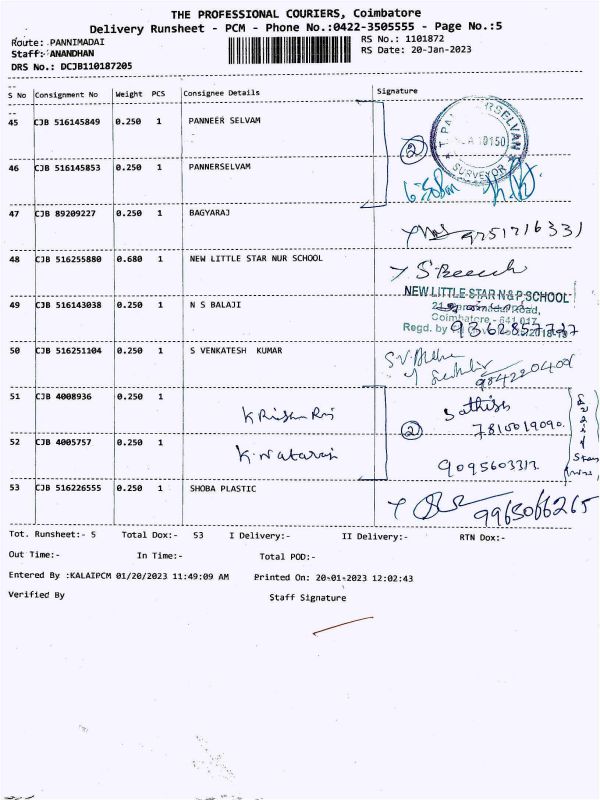 THE PROFESSIONAL COURIERS, Coimbatore
Delivery Runsheet - PCM - Phone No.:0422-3505555 - Page No.:5
Route: PANNIMADAI
RS No.: 1101872
Staff: ANANDHAN
RS Date: 20-Jan-2023
DRS No.: DCJB110187205
S No Consignment No Weight PCS Consignee Details Signature
45 CJB 516145849 0.250 1 PANNEER SELVAM
2
SURVEYOR
46 CJB 516145853 0.250 1 PANNERSELVAM
6.30Pm
47 CJB 89209227 0.250 1 BAGYARAJ
9751716331
48 CJB 516255880 0.680 1 NEW LITTLE STAR NUR SCHOOL
NEW LITTLE STAR N & P SCHOOL
49 CJB 516143038 0.250 1 N S BALAJI
Coimbatore - 641 017
Regd. by
50 CJB 516251104 0.250 1 S VENKATESH KUMAR
51 CJB 4008936 0.250 1
Sathish
7810019090.
52 CJB 4005757 0.250 1 K. Nataraj
2
9095603313
53 CJB 516226555 0.250 1 SHOBA PLASTIC
9965066265
Tot. Runsheet:- 5 Total Dox:- 53 I Delivery:- II Delivery:- RTN Dox:-
Out Time:- In Time:- Total POD:-
Entered By :KALAIPCM 01/20/2023 11:49:09 AM Printed On: 20-01-2023 12:02:43
Verified By Staff Signature